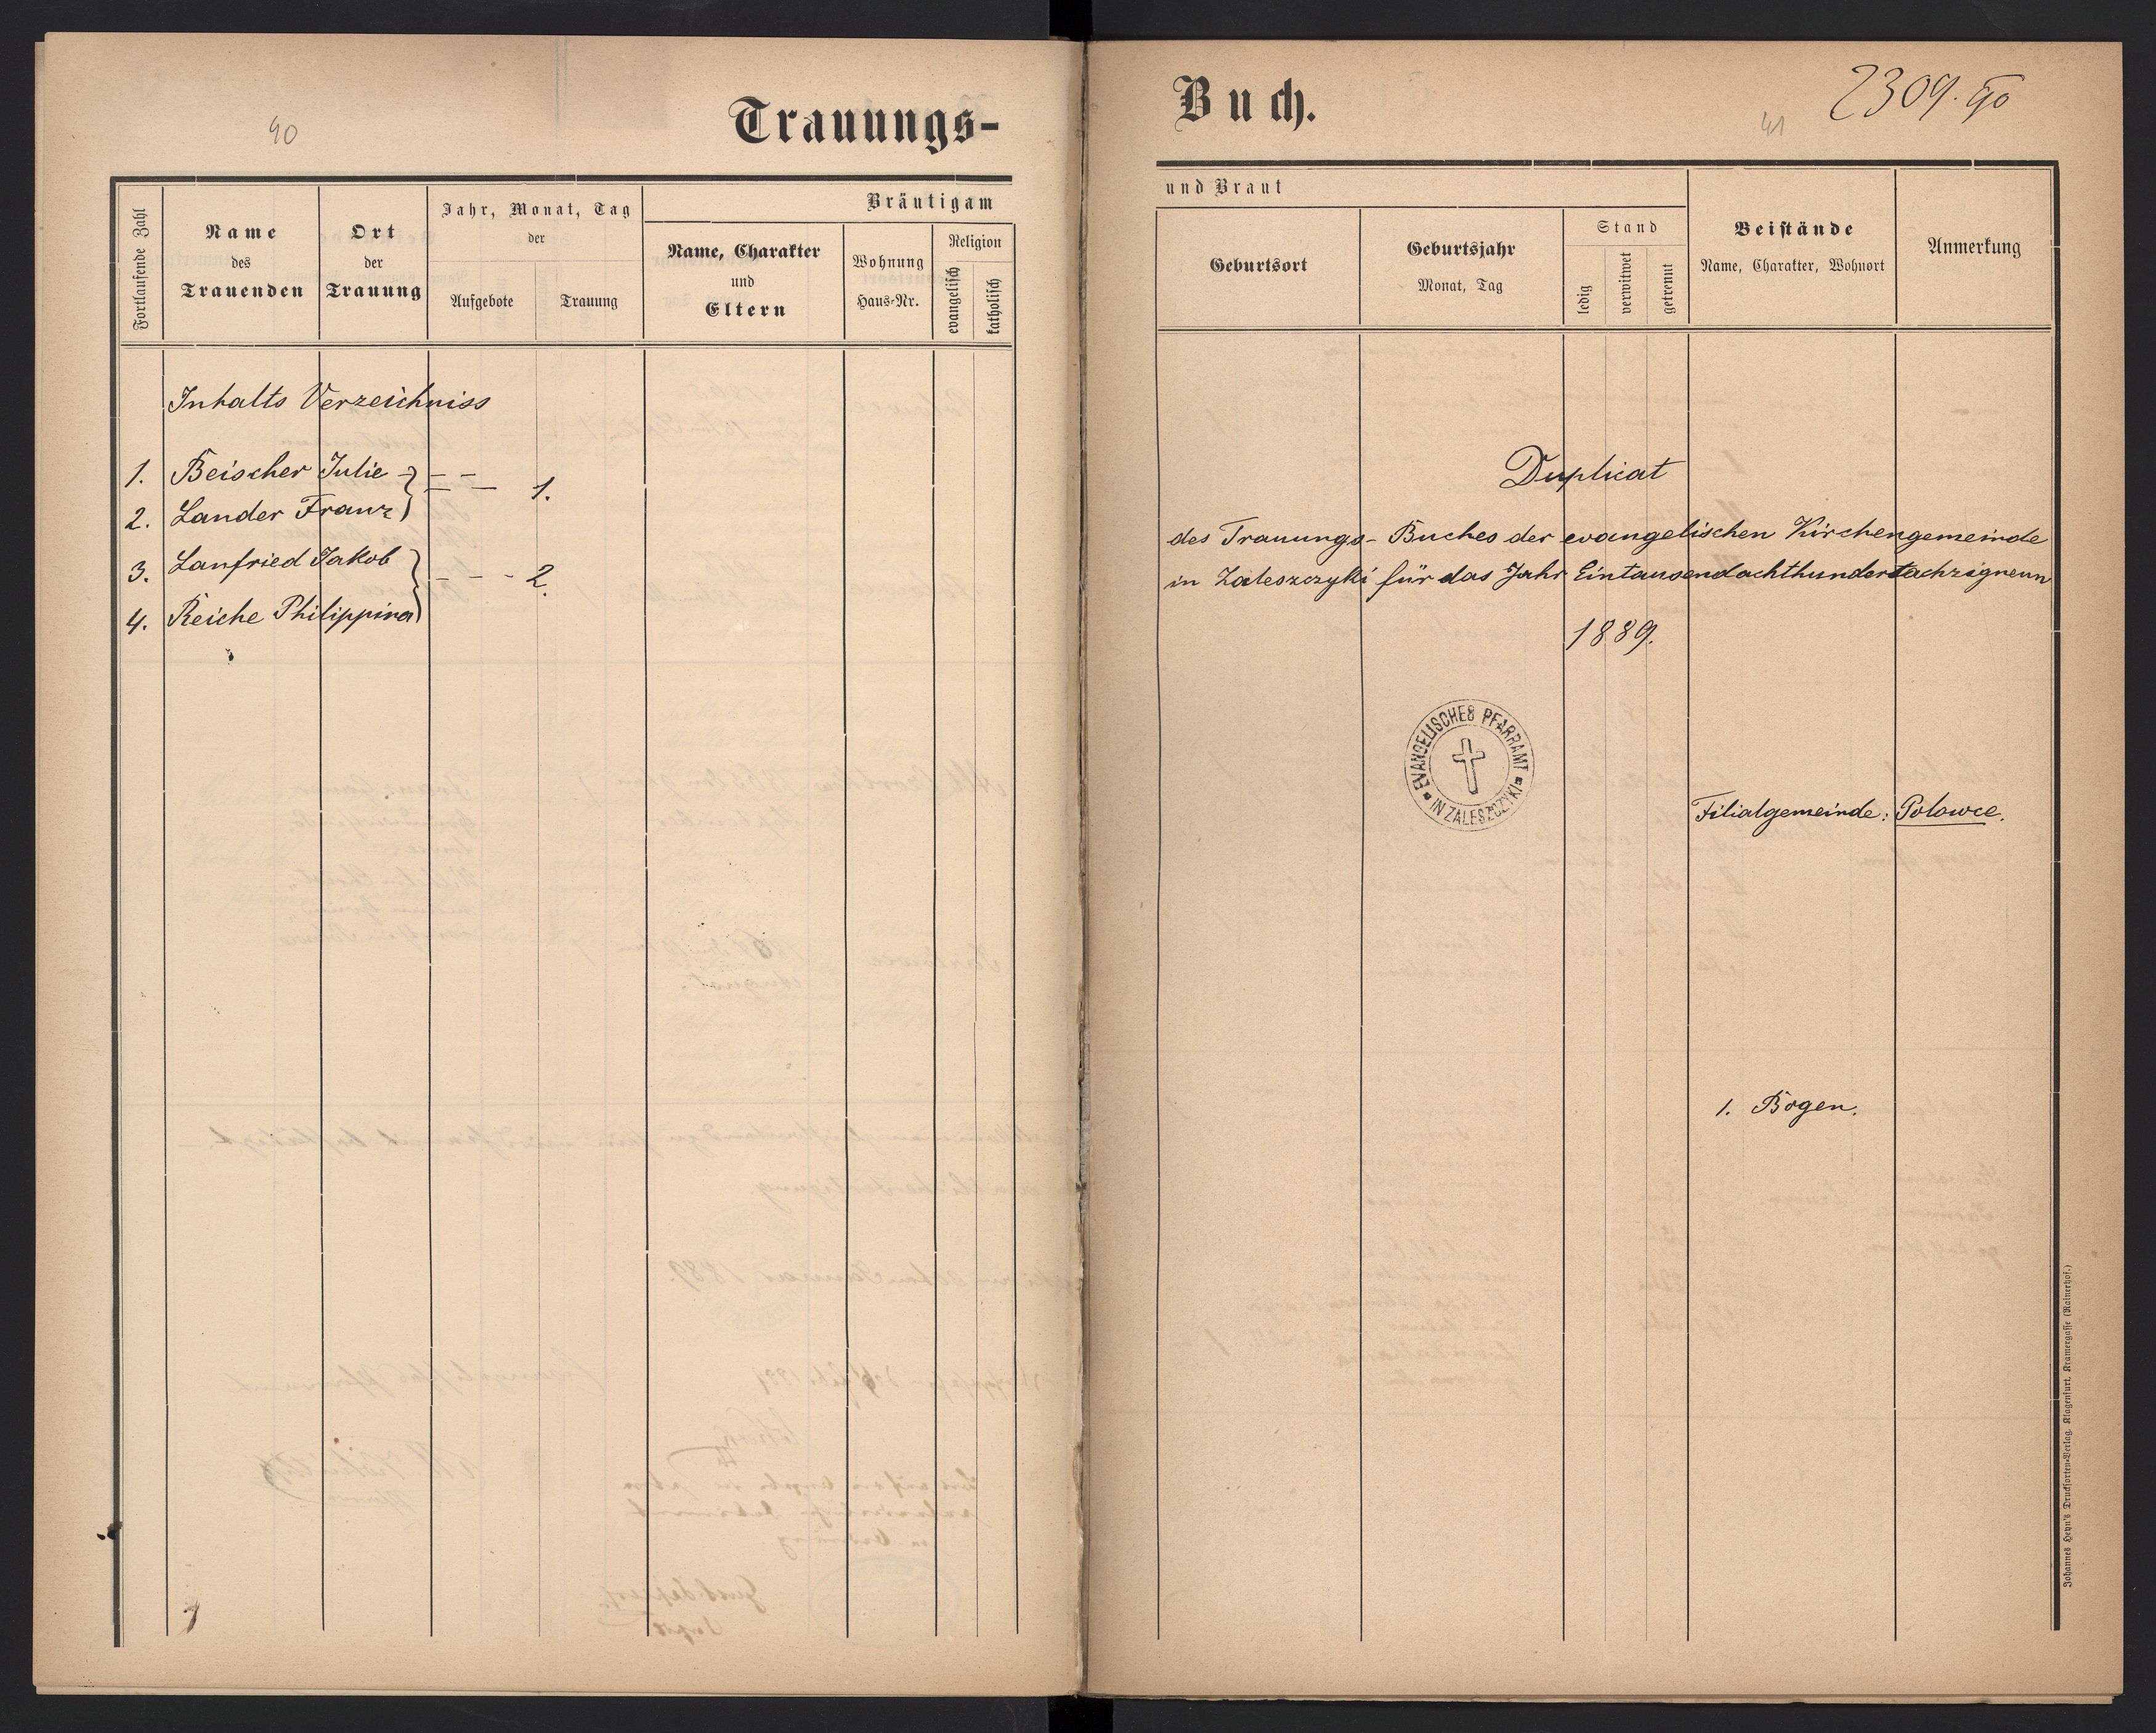 40
Trauungs-
Fortlaufende Zahl
Name
des
Trauenden
Ort
der
Trauung
Jahr, Monat, Tag
der
Aufgebote
Trauung
Bräutigam
Name, Charakter
und
Eltern
Wohnung
Haus-Nr.
Religion
evangelisch
katholisch
Inhalts Verzeichniss
1. Beischer Julie
1.
2. Lander Franz
3. Lanfried Jakob
2.
4. Reiche Philippina
Buch.
41
2309. 90
und Braut
Geburtsort
Geburtsjahr
Monat, Tag
Stand
ledig
verwitwet
getrennt
Beistände
Name, Charakter, Wohnort
Anmerkung
Duplicat
des Trauungs-Buches der evangelischen Kirchengemeinde
in Zaleszczyki für das Jahr Eintausendachthundertachzigneun
1889.
EVANGELISCHES PFARRAMT
IN ZALESZCZYKI
Filialgemeinde: Polowce.
1. Bogen.
Johannes Heyn's Drucksorten-Verlag, Klagenfurt, Kramergasse (Rainerhof.)